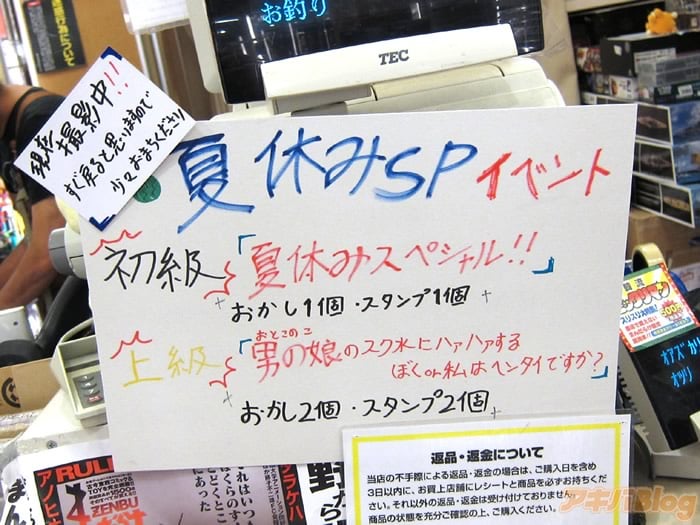 お釣り
TEC
現在 撮影中!!
すぐ戻ると思いますので
少々おまちください
夏休みSP イベント
初級 「夏休みスペシャル!!」
おかし1個・スタンプ1個
おとこのこ
上級 「男の娘のスク水にハァハァする
ぼくor私はヘンタイですか?」
おかし2個・スタンプ2個
返品・返金について
当店の不手際による返品・返金の場合は、ご購入日を含め
3日以内に、お買上店舗にレシートと商品を必ずお持ちくだ
さい。それ以外の返品・返金は受け付けておりません。
商品の状態を充分ご確認の上、ご購入ください。
アキバBlog
RULI
アノヒ
ZENBU